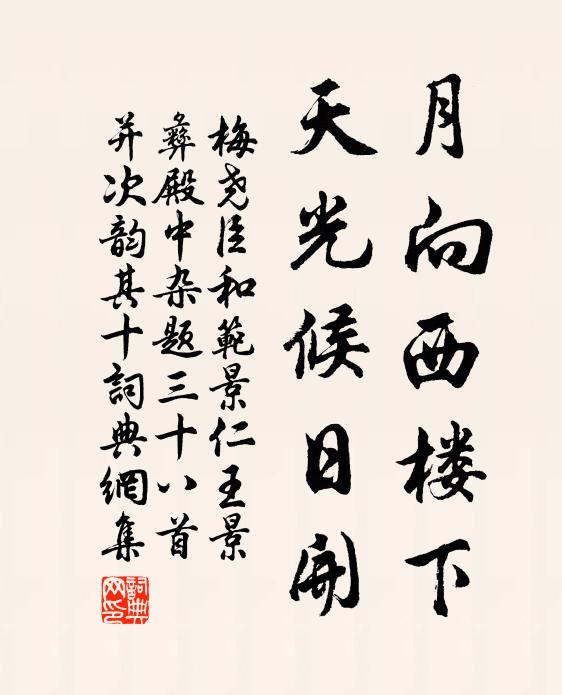 月向西楼下
天光候日開
梅尧臣和範景仁王景
彝殿中杂题三十八首
并次韵其十詞典網集
詞典
网印